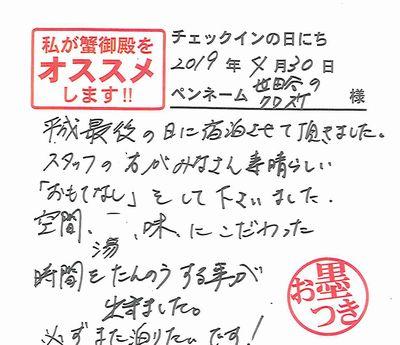 私が蟹御殿を
オススメ
します!!
チェックインの日にち
2019 年 4 月 30 日
ペンネーム 世田谷のクロスケ 様
平成最後の日に宿泊させて頂きました。
スタッフの方がみなさん素晴らしい
「おもてなし」をして下さいました。
空間、湯、味、にこだわった
時間をたんのうする事が
出来ました。
必ずまた泊りたいです!
お墨つき